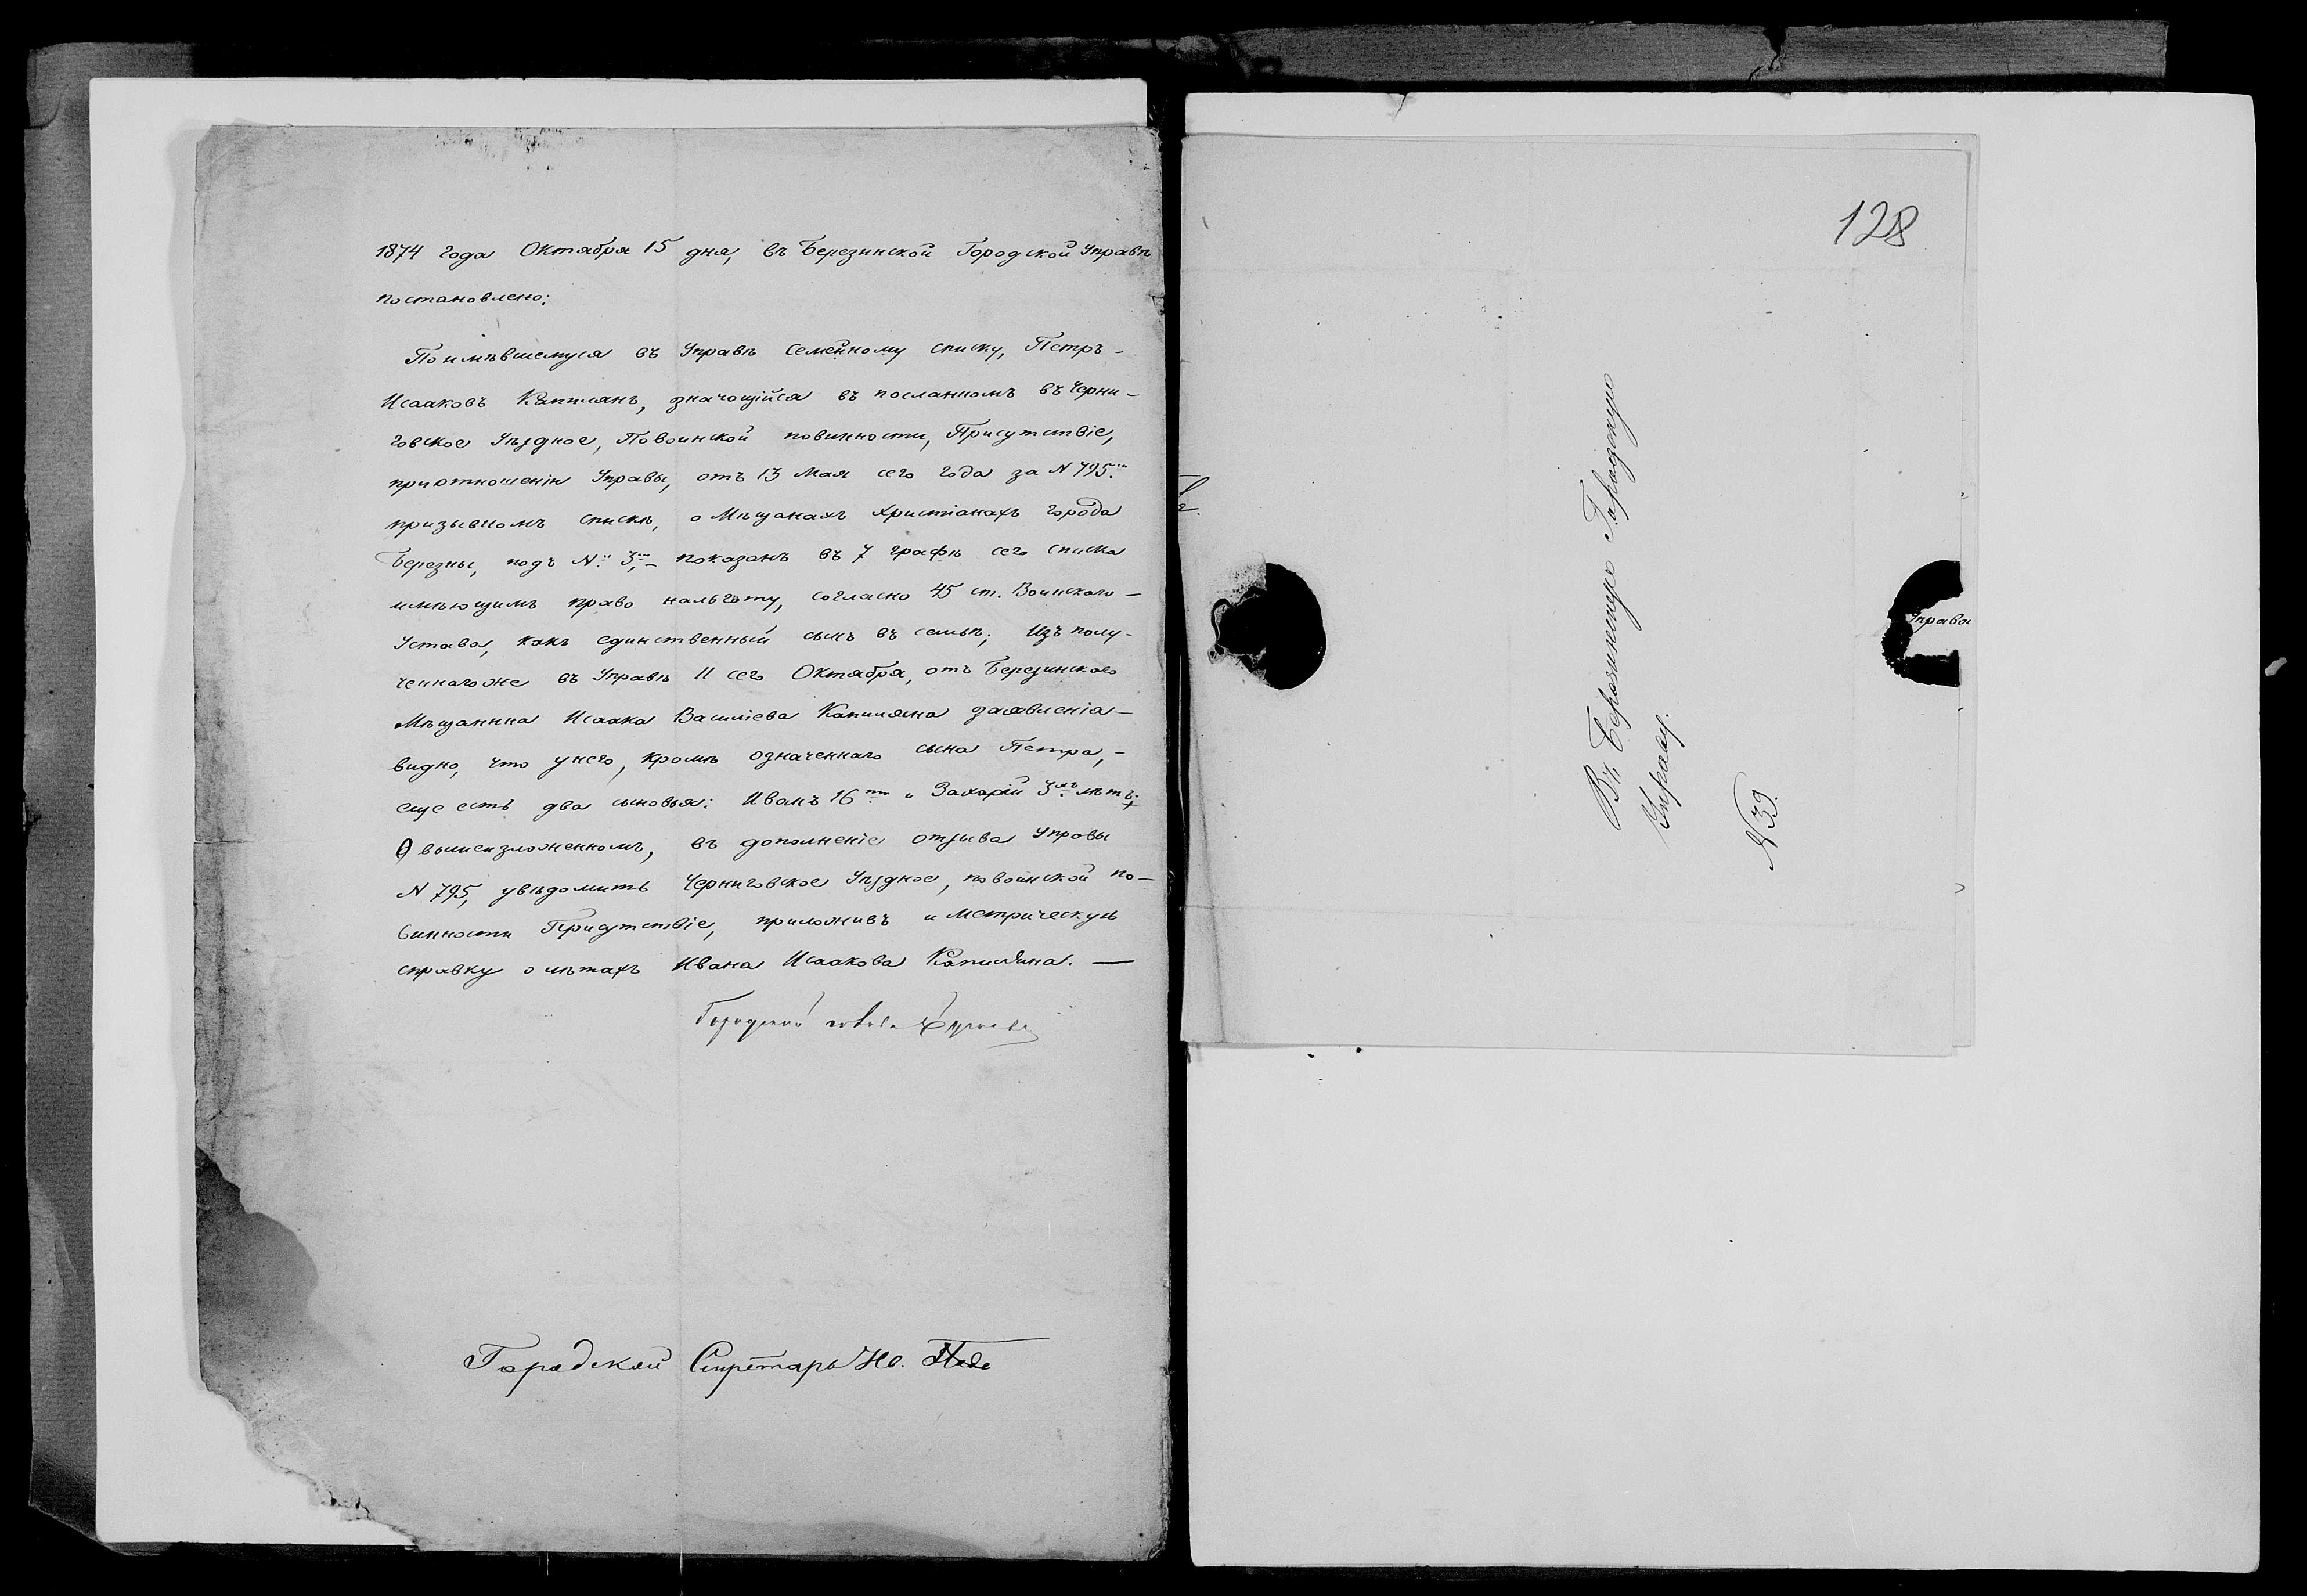 1874 года Октября 15 дня, въ Березинской Городской Управѣ
постановлено:
По имѣвшемуся въ Управѣ семейному списку, Петръ -
Исааковъ Капилянъ, значющійся въ посланномъ въ Черни-
говское Уѣздное, По воинской повинности, Присутствіе,
при отношеніи Управы, отъ 13 Мая сего года за N 795.
призывномъ спискѣ, о Мѣщанахъ Христіанахъ города
Березны, подъ N: 3, - показанъ въ 7 графѣ сего списка
имѣющимъ право на льготу, согласно 45 ст. Воинскаго -
Устава, какъ единственный сынъ въ семьѣ; Изъ полу-
ченнаго же въ Управѣ 11 сего Октября, отъ Березинскаго
Мѣщанина Исаака Василіева Капиляна заявленія -
видно, что у него, кромѣ означеннаго сына Петра, -
еще есть два сыновья: Иванъ 16ти и Захарій 3хъ лѣтъ;
О вышеизложенномъ, въ дополненіе отзыва Управы
N 795, увѣдомить Черниговское Уѣздное, по воинской по-
винности Присутствіе, приложивъ и Метрическую
справку о лѣтахъ Ивана Исаакова Капиляна. —
Городской голова
Городской Секретарь
128
Въ Березинскую Городскую
Управу.
N 39.
Управа